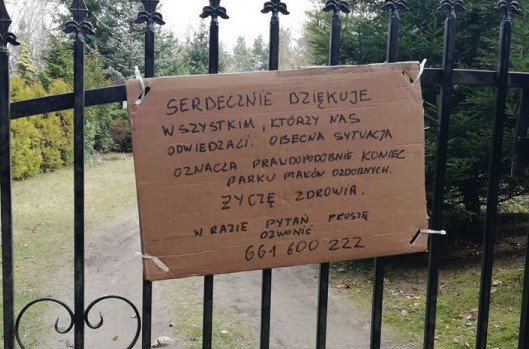 SERDECZNIE DZIĘKUJE
WSZYSTKIM, KTÓRZY NAS
ODWIEDZALI. OBECNA SYTUACJA
OZNACZA PRAWDOPODOBNIE KONIEC
PARKU PTAKÓW OZDOBNYCH.
ŻYCZĘ ZDROWIA.
W RAZIE PYTAŃ PROSZĘ
DZWONIĆ
661 600 222